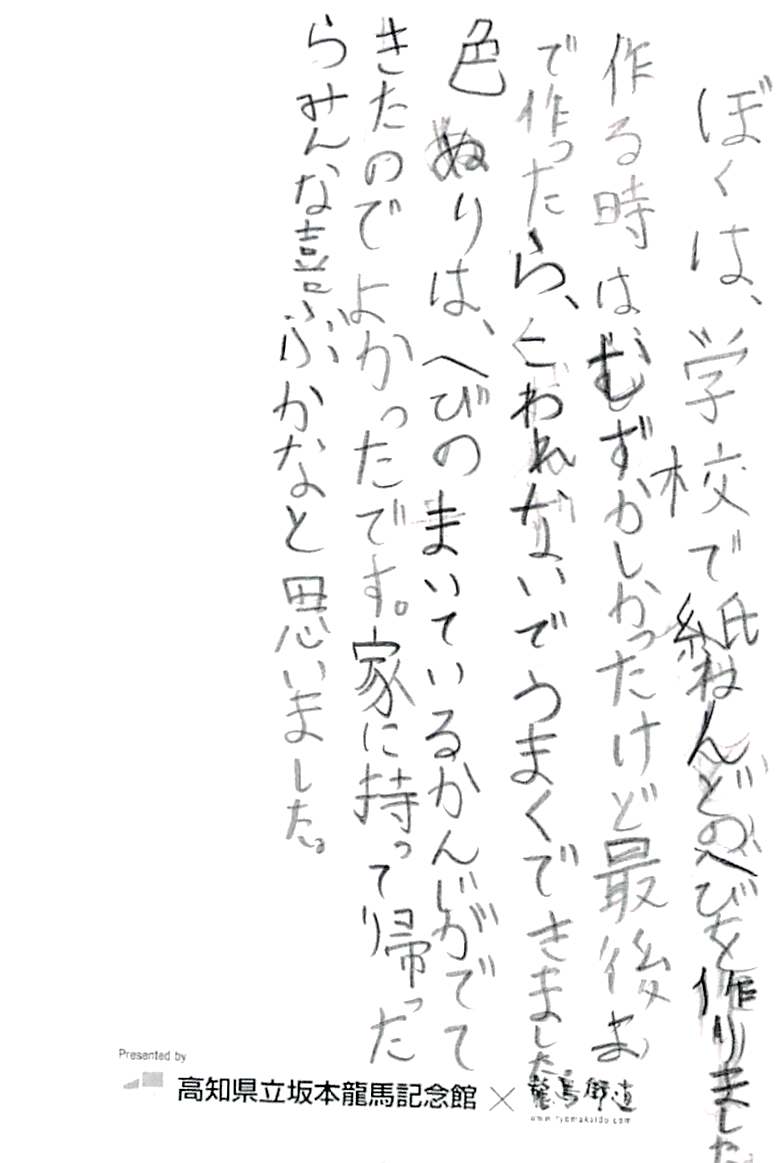 ぼくは、学校で紙ねんどのへびを作りました
作る時はむずかしかったけど最後ま
で作ったら、こわれないでうまくできました。
色ぬりは、へびのまいているかんじがでて
きたのでよかったです。家に持って帰った
らみんな喜ぶかなと思いました。
Presented by
高知県立坂本龍馬記念館×龍馬街道
www.ryomakaido.com